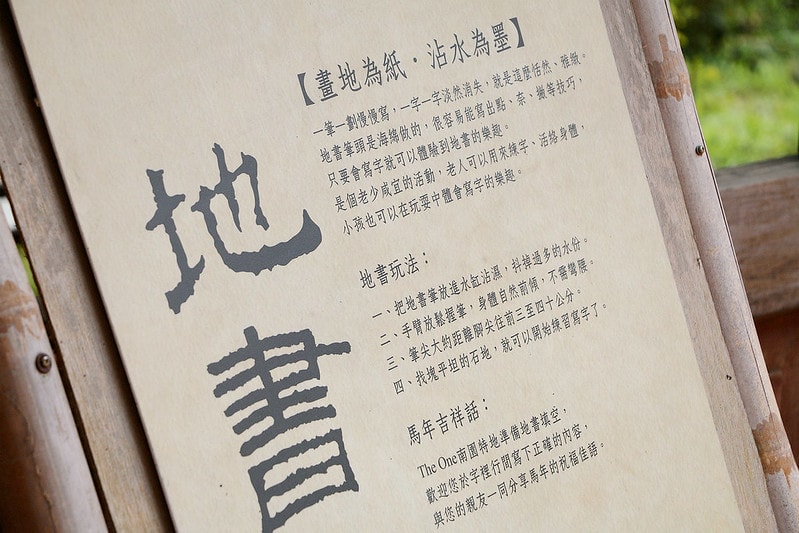 地書
【畫地為紙・沾水為墨】
一筆一劃慢慢寫，一字一字淡然消失，就是這麼恬然、雅緻。
地書筆頭是海綿做的，很容易能寫出點、奈、撇等技巧，
只要會寫字就可以體驗到地書的樂趣。
是個老少咸宜的活動，老人可以用來練字、活絡身體，
小孩也可以在玩耍中體會寫字的樂趣。
地書玩法：
一、把地書筆放進水缸沾濕，抖掉過多的水份。
二、手臂放鬆握筆，身體自然前傾，不需彎腰。
三、筆尖大約距離腳尖往前三至四十公分。
四、找塊平坦的石地，就可以開始練習寫字了。
馬年吉祥話：
The One南園特地準備地書填空，
歡迎您於字裡行間寫下正確的內容，
與您的親友一同分享馬年的祝福佳語。